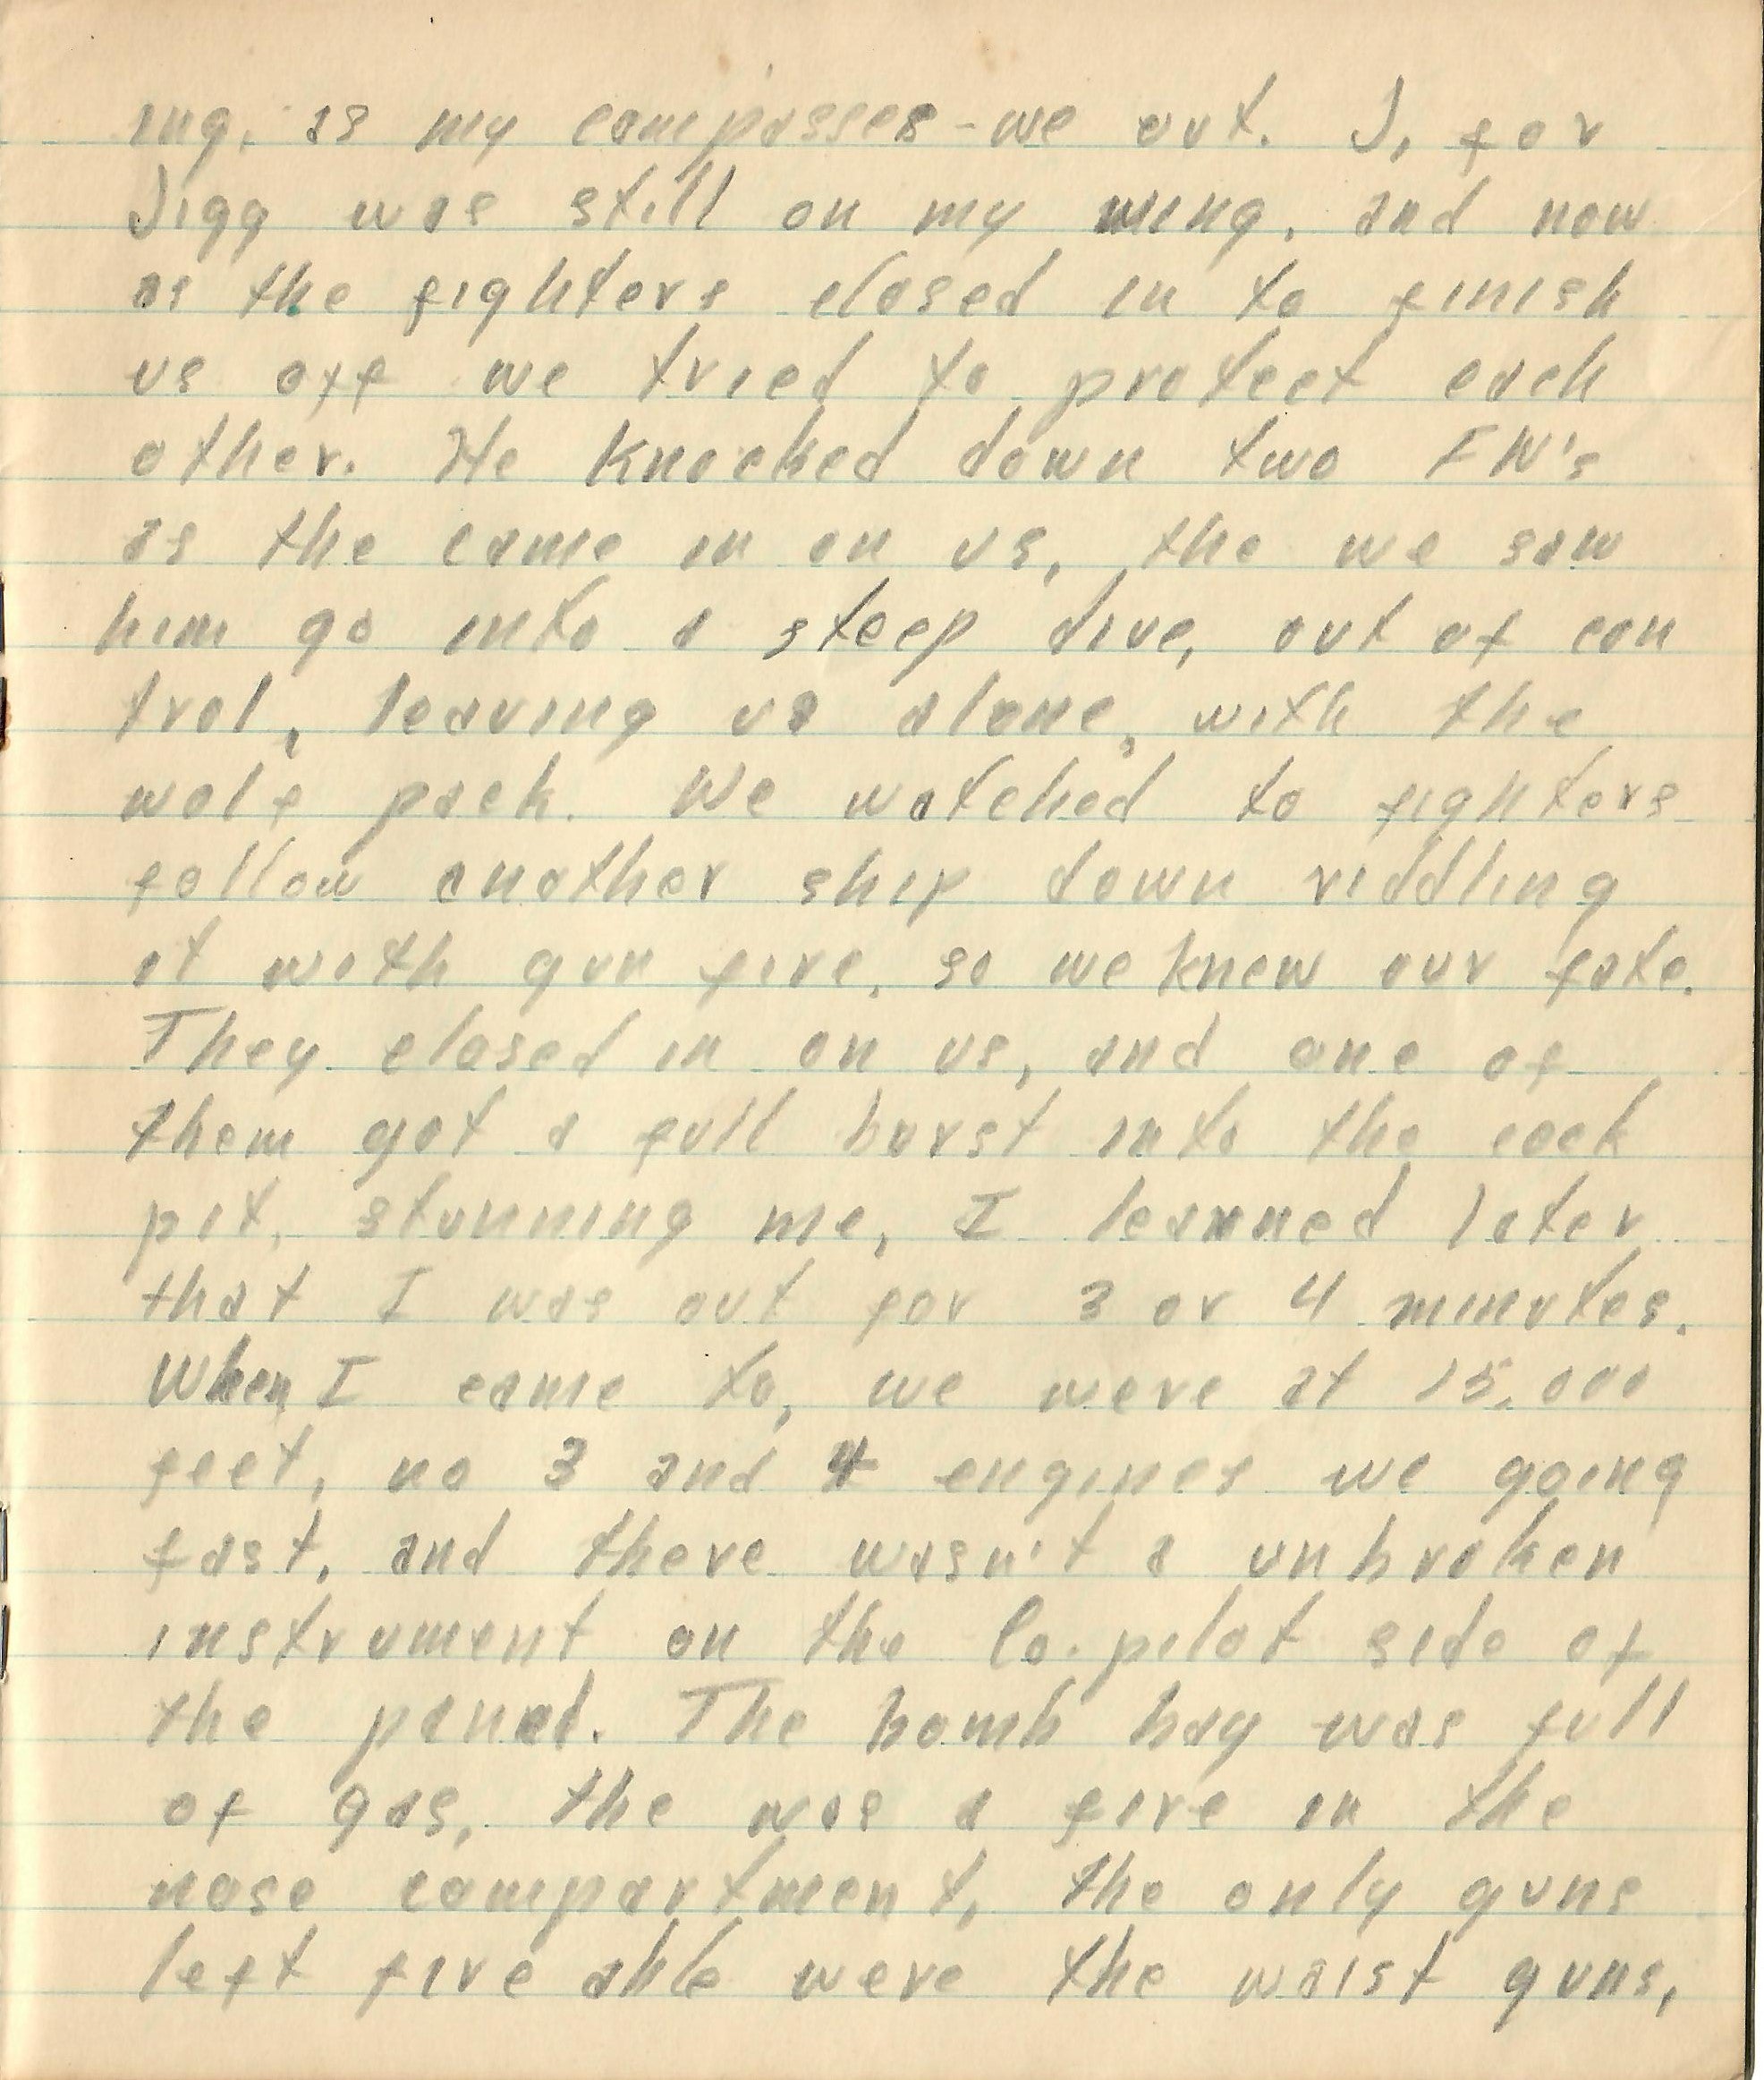 ing, as my compasses we out. J, for
Jigg was still on my wing, and now
as the fighters closed in to finish
us off we tried to protect each
other. He knocked down two FW's
as the came in on us, the we saw
him go into a steep dive, out of con
trol, leaving us alone, with the
wolf pack. We watched to fighters
follow another ship down riddling
it with gun fire, so we knew our fate.
They closed in on us, and one of
them got a full burst into the cock
pit, stunning me, I learned later
that I was out for 3 or 4 minutes.
When I came to, we were at 15,000
feet, no 3 and 4 engines we going
fast, and there wasn't a unbroken
instrument on the Co-pilot side of
the panel. The bomb bay was full
of gas, the was a fire in the
nose compartment, the only guns
left fire able were the waist guns,